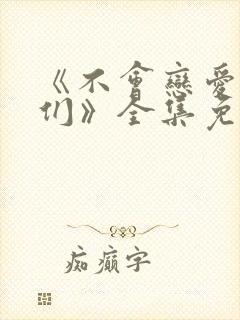 《不會戀愛
们》全集免
痴癫字